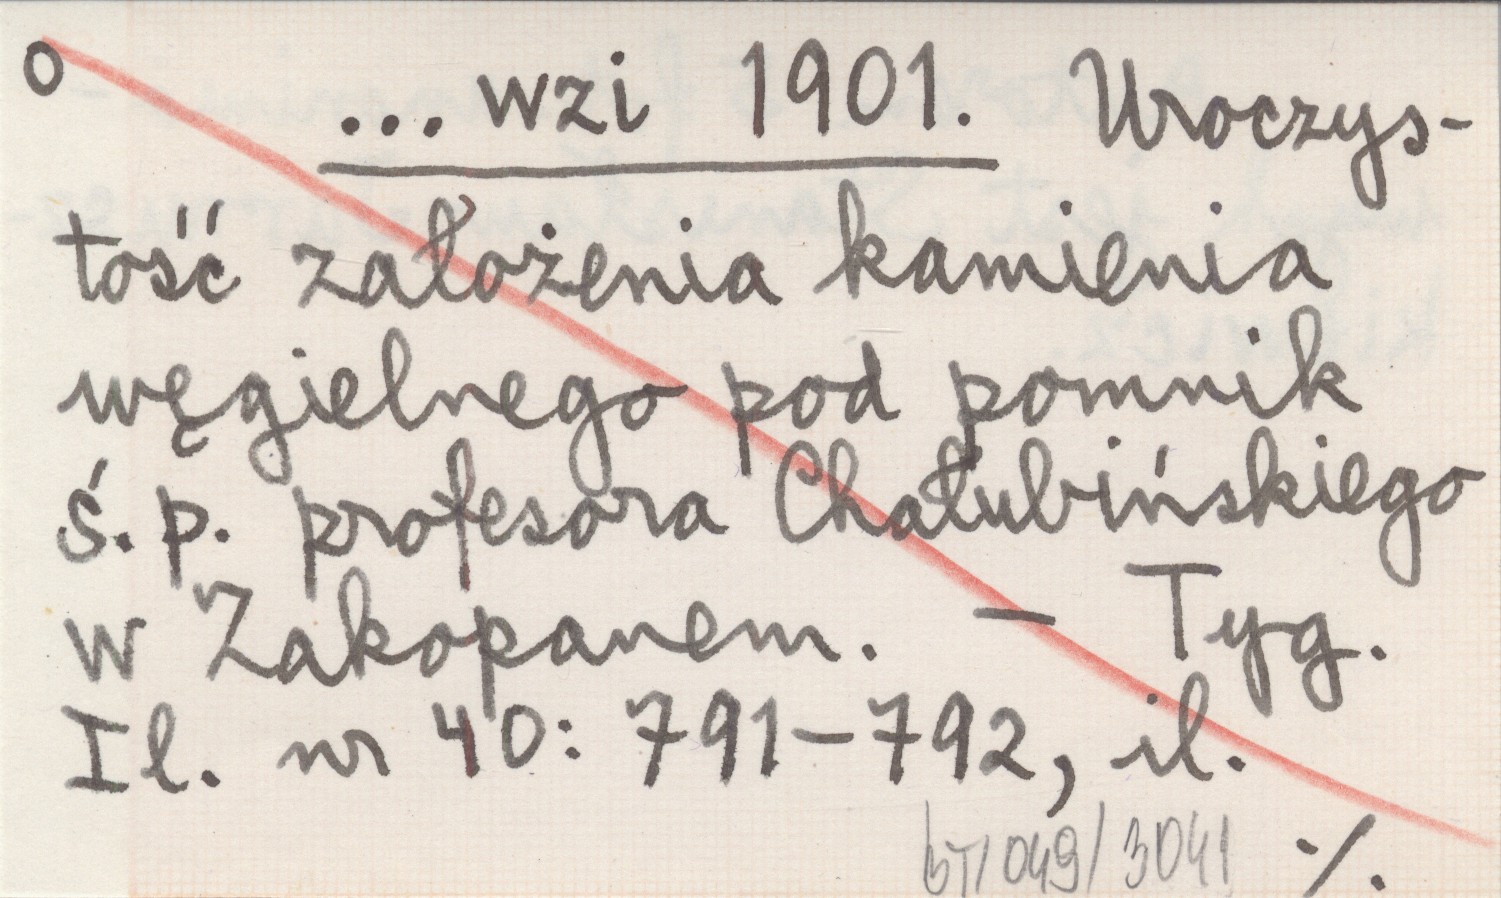 o ... wzi 1901. Uroczys-
tość założenia kamienia
węgielnego pod pomnik
ś. p. profesora Chałubińskiego
w Zakopanem. — Tyg.
Il. nr 40: 791-792, il.
BT/049/3041 ./.